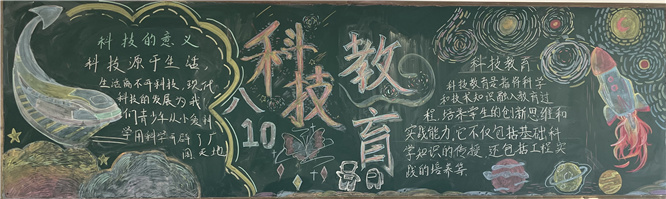 科技的意义
科技源于生活,
生活离不开科技,现代
科技的发展为我
们青少年从小爱科
学用科学开辟了广
阔天地
八
10
科技
教育
科技教育
科技教育是指将科学
和技术知识融入教育过
程,培养学生的创新思维和
实践能力,它不仅包括基础科
学知识的传授,还包括工程实
践的培养等